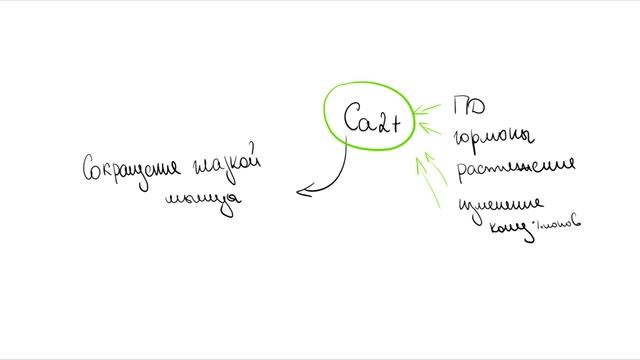 Ca2+
ПД
гормоны
растяжение
изменение
конц. ионов
Сокращение гладкой
мышцы